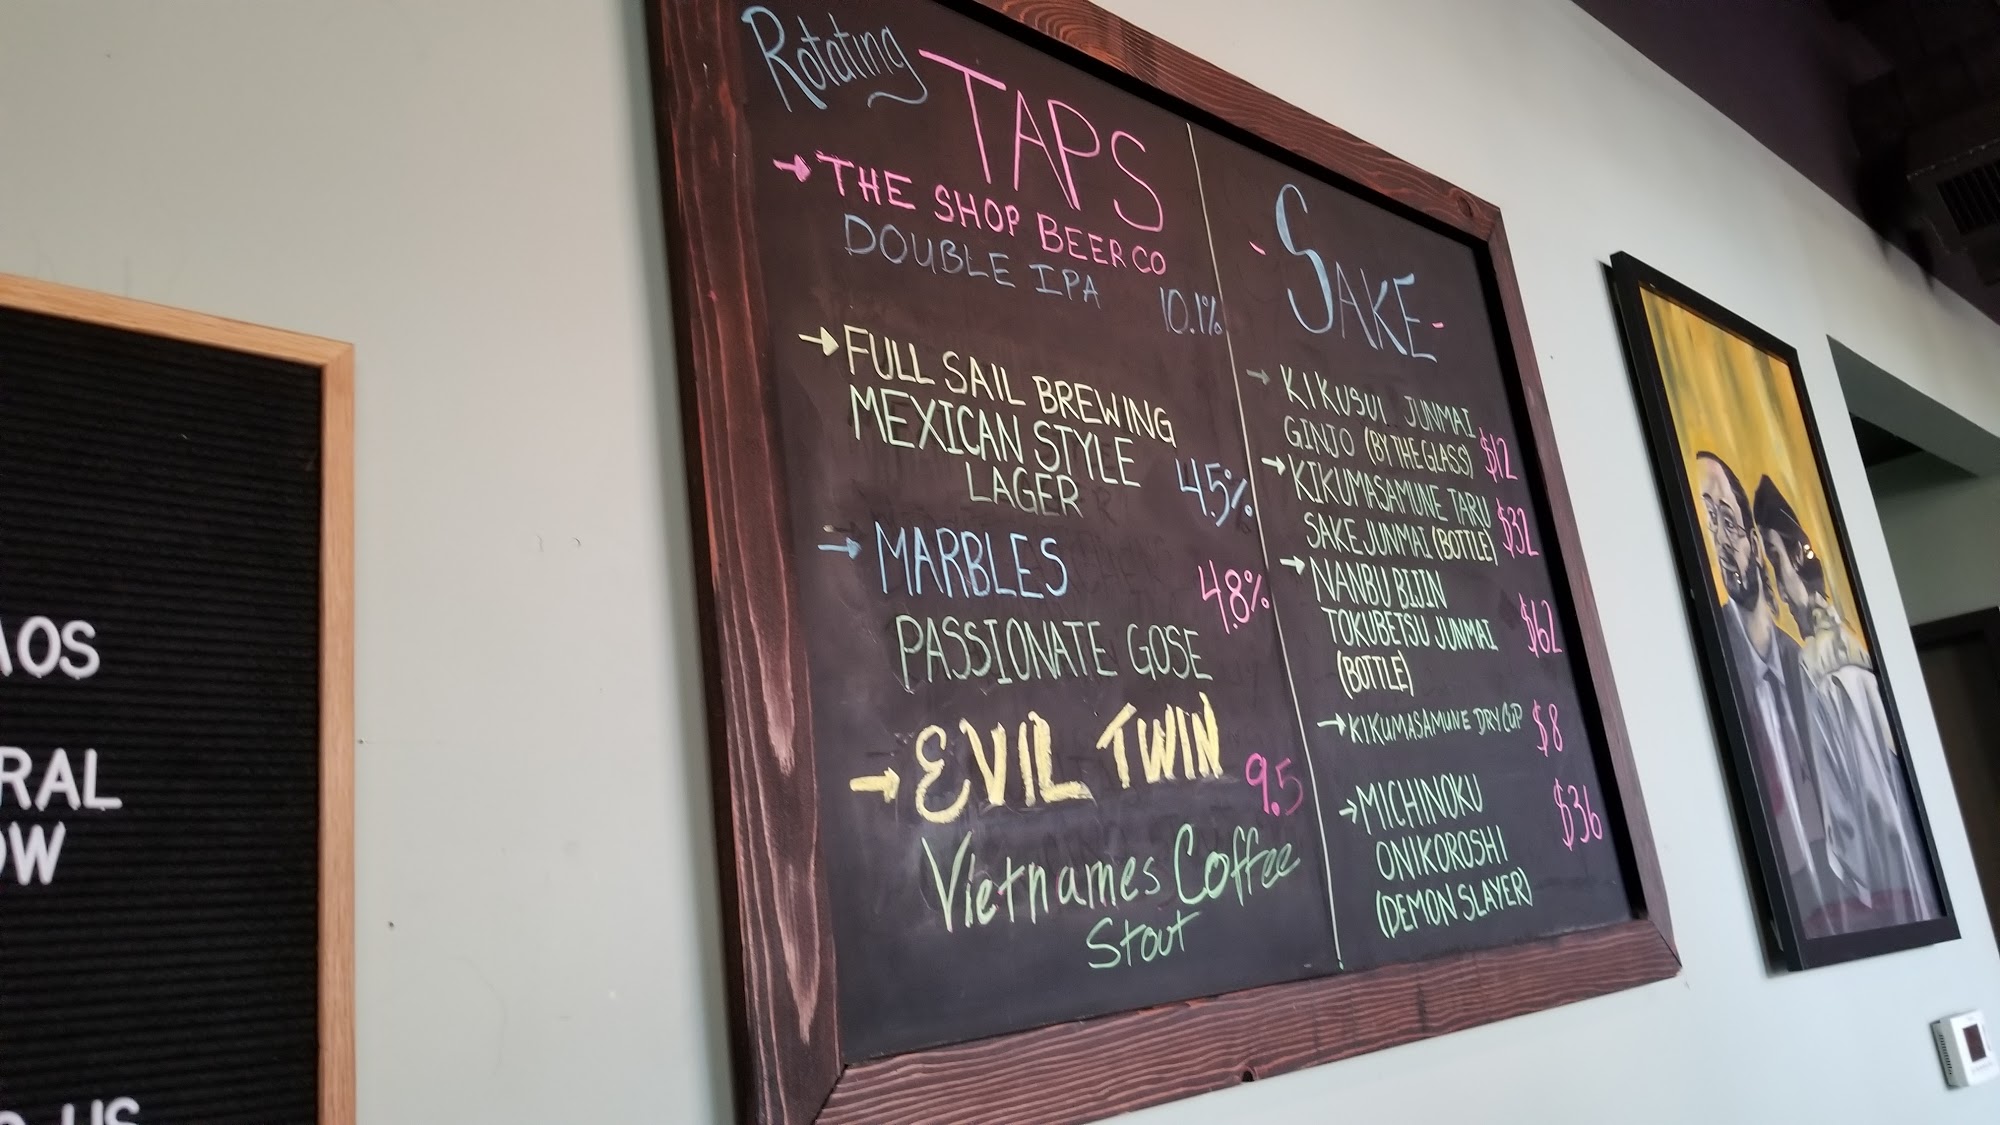 Rotating
TAPS
→ THE SHOP BEER CO
DOUBLE IPA 10.1%
→ FULL SAIL BREWING
MEXICAN STYLE
LAGER 4.5%
→ MARBLES 4.8%
PASSIONATE GOSE
→ EVIL TWIN 9.5
Vietnames Coffee
Stout
- SAKE -
→ KIKUSUI JUNMAI
GINJO (BY THE GLASS) $12
→ KIKUMASAMUNE TARU
SAKE JUNMAI (BOTTLE) $32
→ NANBU BIJIN
TOKUBETSU JUNMAI $62
(BOTTLE)
→ KIKUMASAMUNE DRY CUP $8
→ MICHINOKU $36
ONIKOROSHI
(DEMON SLAYER)
OS
RAL
OW
US